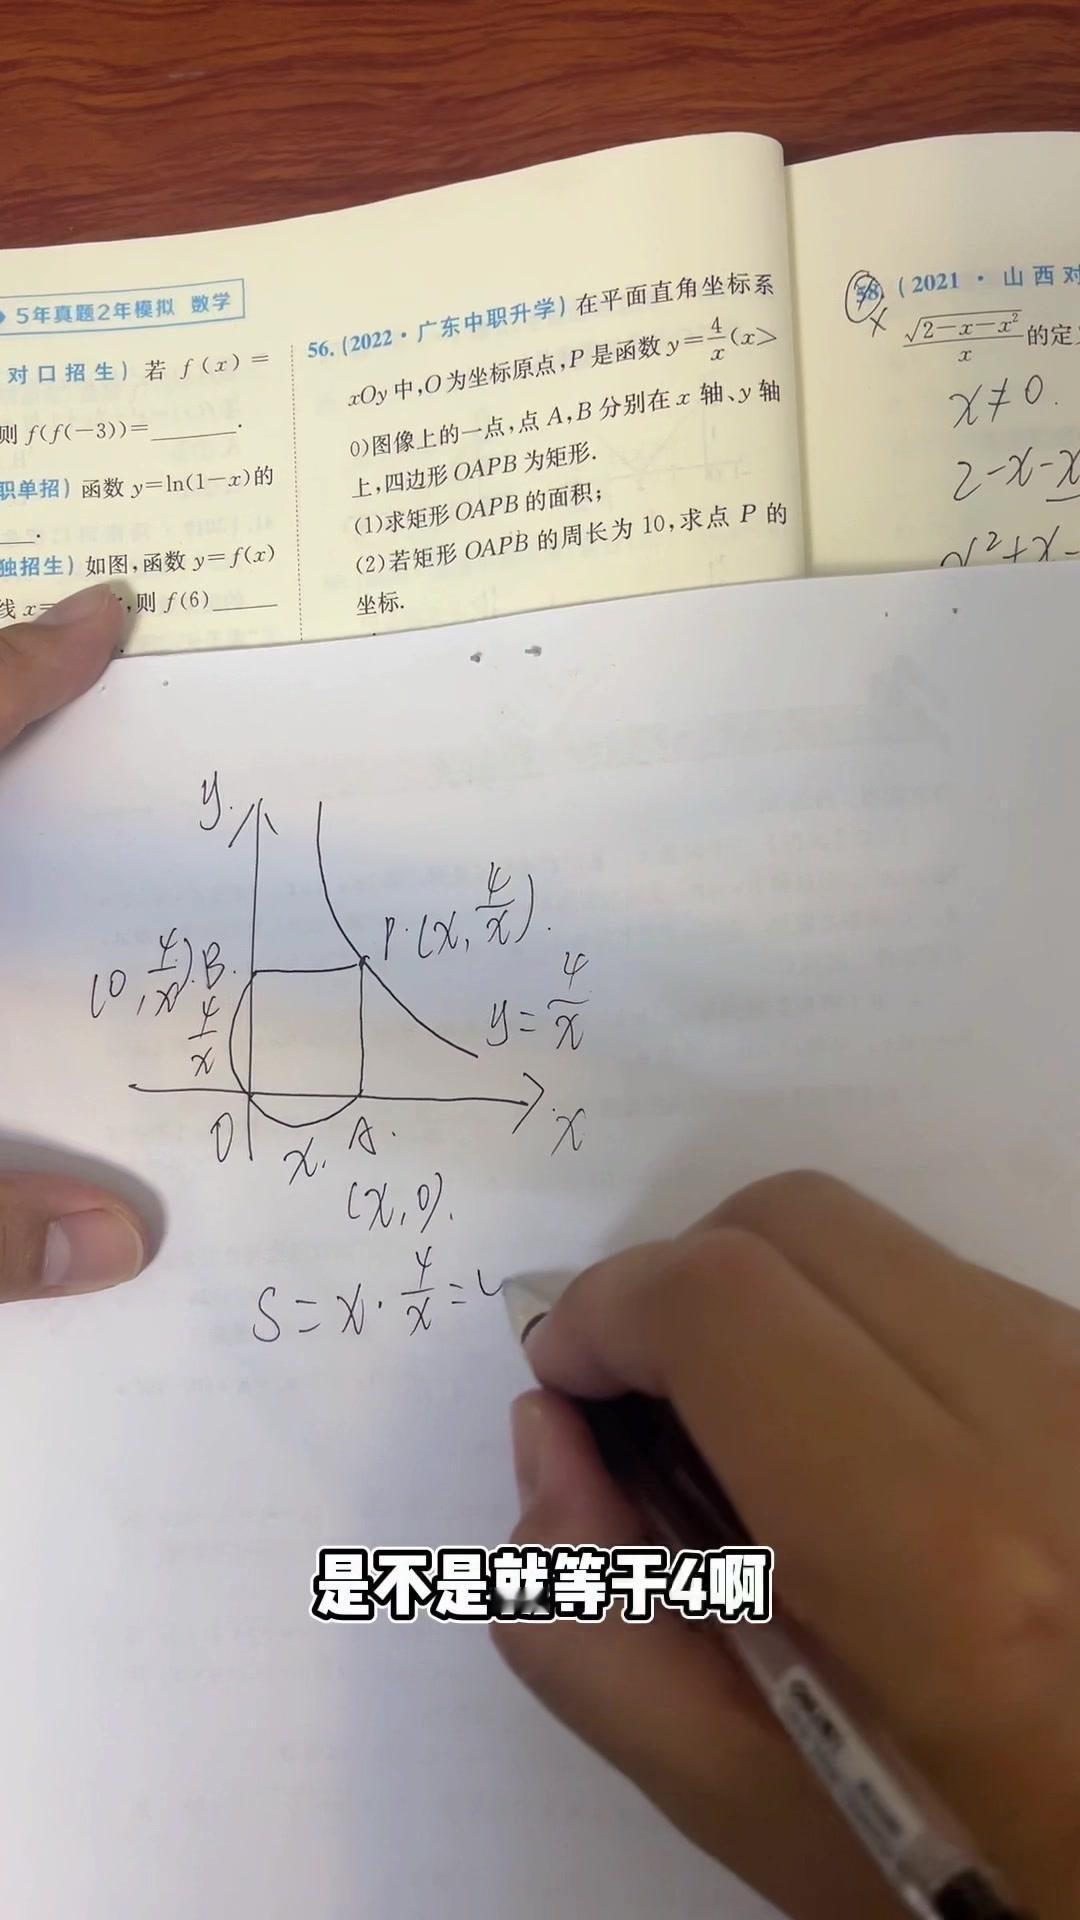 5年真题2年模拟 数学
对口招生) 若 f(x)=
则 f(f(-3))=______.
职单招) 函数 y=ln(1-x)的
___.
独招生) 如图,函数 y=f(x)
线 x=
,则 f(6)_____
56.(2022·广东中职升学) 在平面直角坐标系
xOy 中,O 为坐标原点,P 是函数 y=4/x(x>
0)图像上的一点,点 A,B 分别在 x 轴、y 轴
上,四边形 OAPB 为矩形.
(1)求矩形 OAPB 的面积;
(2)若矩形 OAPB 的周长为 10,求点 P 的
坐标.
58.(2021·山西对
√(2-x-x²)/x 的定
x≠0.
2-x-x
y.
P.(x, 4/x).
(0, 4/x).B.
4/x
y=4/x
O
x.
A.
x
(x,0).
S=x·4/x=
是不是就等于4啊